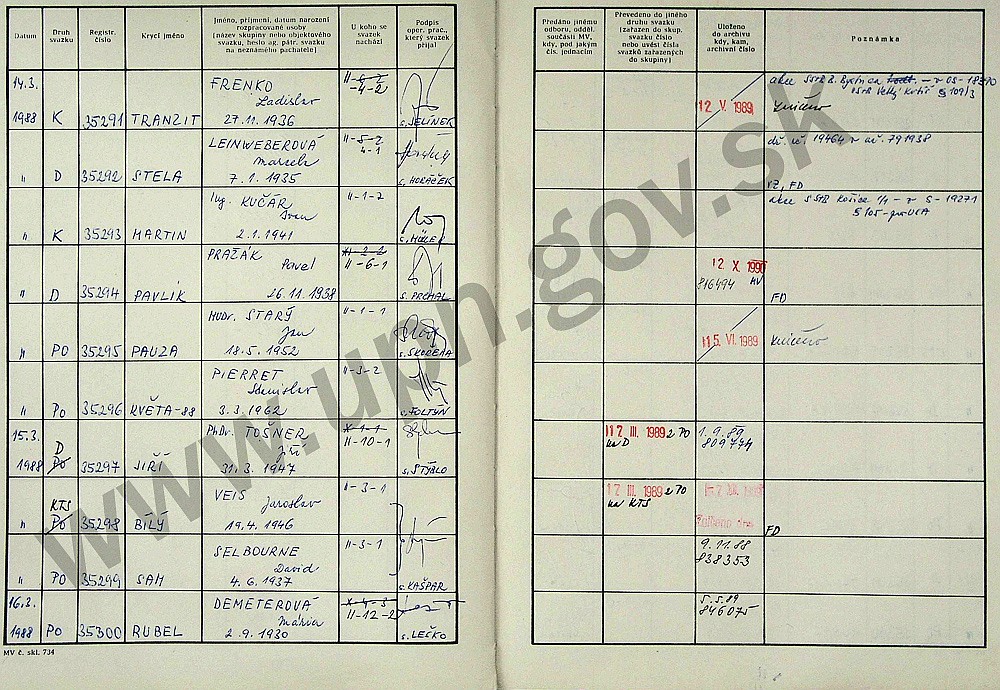 Datum
Druh svazku
Registr. číslo
Krycí jméno
Jméno, příjmení, datum narození
rozpracované osoby
(název skupiny nebo objektového
svazku, heslo ag. pátr. svazku
na neznámého pachatele)
U koho se
svazek
nachází
Podpis
oper. prac.,
který svazek
přijal
Předáno jinému
odboru, odděl.
součásti MV,
kdy, pod jakým
čís. jednacím
Převedeno do jiného
druhu svazku
(zařazen do skup.
svazku číslo
nebo uvést čísla
svazků zařazených
do skupiny)
Uloženo
do archivu
kdy, kam,
archivní číslo
Poznámka
14.3. FRENKO II-6-2
Ladislav -4-2
1988 K 35291 TRANZIT 27.11.1936 s. JELÍNEK
12 V. 1989
LEINWEBEROVÁ II-5-2
Marcela 4-1
" D 35292 STELA 7.1.1935 s. HORÁČEK
19464 791938
VZ, FD
Ing. KUČÁR II-1-2
Ivan
" K 35293 MARTIN 2.1.1941
akce Košice S-19271
PRAŽÁK
Pavel II-6-1
" D 35294 PAVLÍK 26.11.1938 s. PRCHAL
12 X. 1990
816494 FD
MUDr. STARÝ II-1-1
Jan
" PO 35295 PAUZA 18.5.1952 s. ŠKODELA
15. VI. 1989
PIERRET II-3-2
Stanislav
" PO 35296 KVĚTA-88 3.3.1962 s. FOLTÝN
15.3. PhDr. TOŠNER X-1-1
D Jiří II-10-1
1988 PO 35297 JIŘÍ 31.3.1947 s. STÝBLO
17 III. 1989 z PO
na D
1.9.89
809774
KTS VEIS II-3-1
Jaroslav
" PO 35298 BÍLÝ 19.4.1946
17 III. 1989 z PO
na KTS
FD
SELBOURNE II-3-1
David
" PO 35299 SAM 4.6.1937 s. KAŠPAR
9.11.88
838353
16.3. DEMETEROVÁ X-4-3
Mária II-12-2
1988 PO 35300 RUBEL 2.9.1930 s. LEČKO
5.5.89
846075
MV č. skl. 734
www.upn.gov.sk